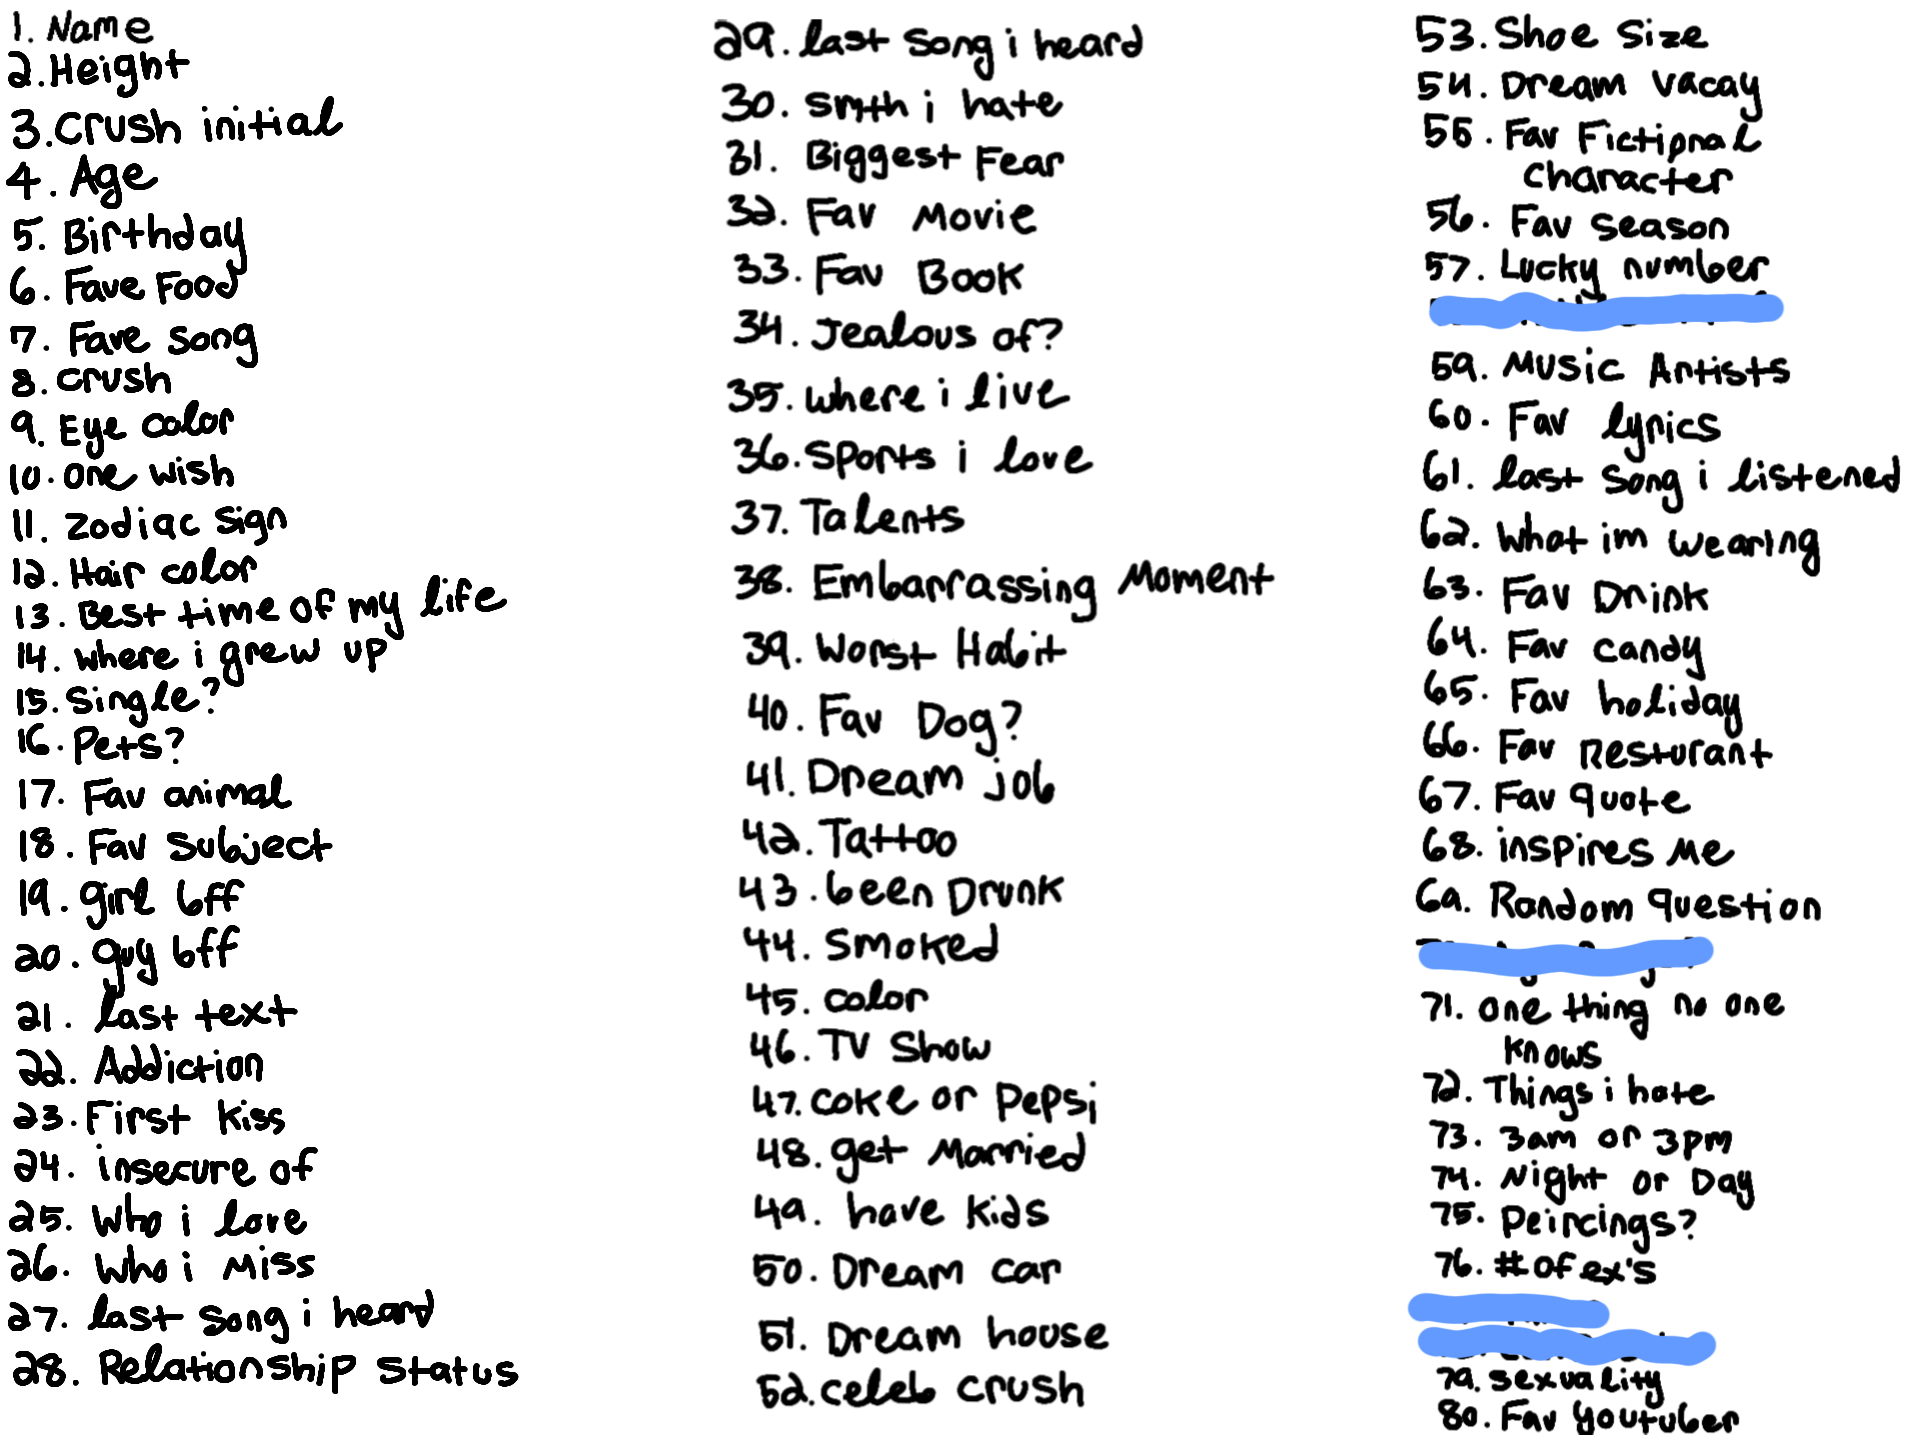 1. Name
2. Height
3. Crush initial
4. Age
5. Birthday
6. Fave Food
7. Fave song
8. crush
9. Eye color
10. one wish
11. zodiac sign
12. Hair color
13. Best time of my life
14. where i grew up
15. Single?
16. Pets?
17. Fav animal
18. Fav subject
19. girl bff
20. guy bff
21. last text
22. Addiction
23. First kiss
24. insecure of
25. Who i love
26. Who i Miss
27. last song i heard
28. Relationship status
29. last song i heard
30. smth i hate
31. Biggest Fear
32. Fav Movie
33. Fav Book
34. Jealous of?
35. where i live
36. Sports i love
37. Talents
38. Embarrassing Moment
39. Worst Habit
40. Fav Dog?
41. Dream job
42. Tattoo
43. been Drunk
44. Smoked
45. color
46. TV Show
47. coke or Pepsi
48. get Married
49. have kids
50. Dream car
51. Dream house
52. celeb crush
53. Shoe Size
54. Dream vacay
55. Fav Fictional
character
56. Fav season
57. Lucky number
59. Music Artists
60. Fav lyrics
61. last song i listened
62. What im wearing
63. Fav Drink
64. Fav candy
65. Fav holiday
66. Fav Resturant
67. Fav quote
68. inspires Me
69. Random question
71. one thing no one
knows
72. Things i hate
73. 3am or 3pm
74. Night or Day
75. Peircings?
76. # of ex's
79. sexuality
80. Fav youtuber